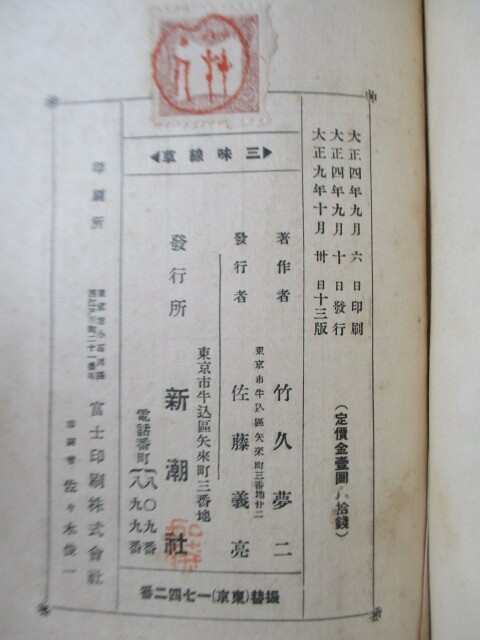 大正四年九月六日印刷
大正四年九月十日發行
大正九年十月卅日十三版
(定價金壹圓八拾錢)
三味線草
著作者 竹久夢二
東京市牛込區矢來町三番地廿二
發行者 佐藤義亮
東京市牛込區矢來町三番地
發行所 新潮社
電話番町 八〇九番
八九九番
印刷所 富士印刷株式會社
印刷者 佐々木俊一
振替(東京)一七四二番